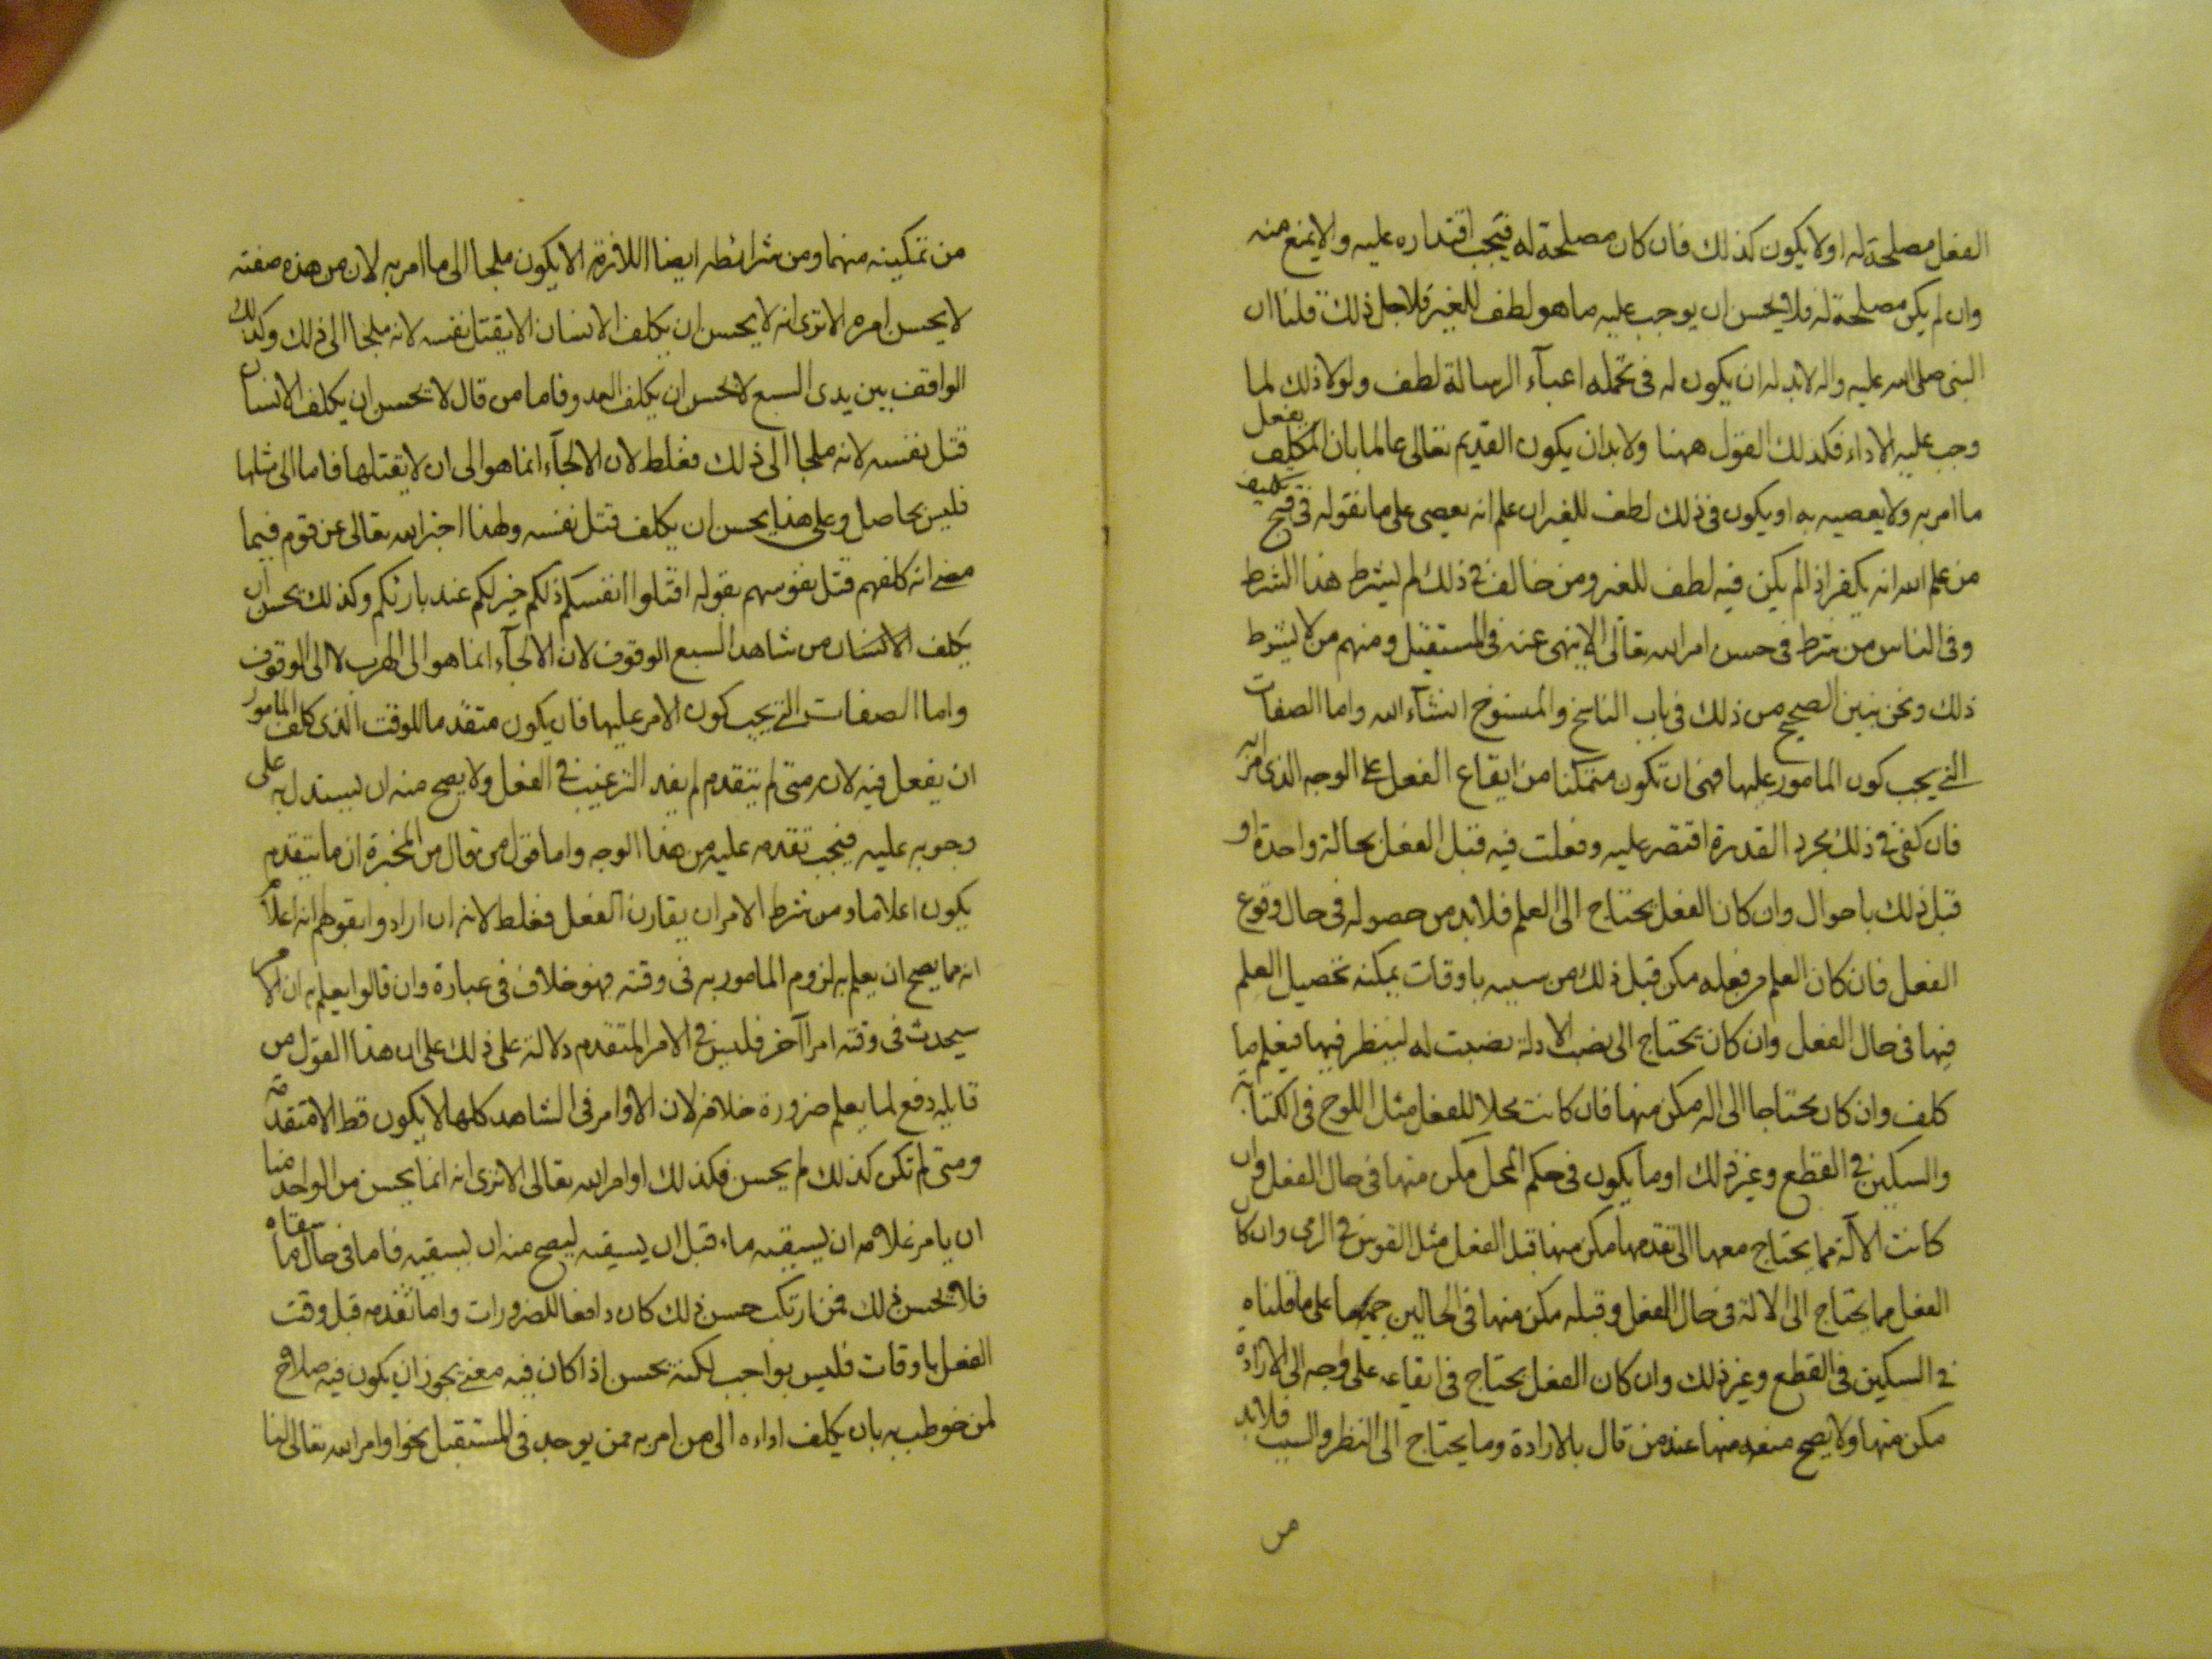 الفعل مصلحة له او لا يكون كذلك فان كان مصلحة له فيجب اقتداره عليه والا يمنع منه
وان لم يكن مصلحة له فلا يحسن ان يوجب عليه ما هو لطف للغير فلاجل ذلك قلنا ان
النبى صلى الله عليه واله لابد له ان يكون له فى تحمله اعبآء الرسالة لطف ولولا ذلك لما
وجب عليه الاداء فكذلك القول ههنا ولا بد ان يكون القديم تعالى عالما بان المكلف يفعل
ما امر به ولا يعصيه به او يكون فى ذلك لطف للغير ان علم انه يعصى على ما نقوله فى قبح تكليف
من علم الله انه يكفر اذا لم يكن فيه لطف للغير ومن خالف فى ذلك لم يشترط هذا الشرط
وفى الناس من شرط فى حسن امر الله تعالى الا ينهى عنه فى المستقبل ومنهم من لا يشترط
ذلك ونحن نبين الصحيح من ذلك فى باب الناسخ والمنسوخ انشآء الله واما الصفات
التى يجب كون المامور عليها فهى ان تكون متمكنا من ايقاع الفعل على الوجه الذى امر به
فان كفى فى ذلك مجرد القدرة اقتصر عليه وفعلت فيه قبل الفعل بحالة واحدة او
قبل ذلك باحوال وان كان الفعل يحتاج الى العلم فلابد من حصوله فى حال وقوع
الفعل فان كان العلم من فعله مكن قبل ذلك من سببه باوقات يمكنه تحصيل العلم
فيها فى حال الفعل وان كان يحتاج الى نصب الادلة نصبت له لينظر فيها فيعلم ما
كلف وان كان محتاجا الى اله مكن منها فان كانت محلا للفعل مثل اللوح فى الكتابه
والسكين فى القطع وغير ذلك او ما يكون فى حكم المحل مكن منها فى حال الفعل وان
كانت الآلة مما يحتاج معها الى تقدمها مكن منها قبل الفعل مثل القوس فى الرمى وان كان
الفعل مما يحتاج الى الالة فى حال الفعل وقبله مكن منها فى الحالين جميعا على ما قلناه
فى السكين فى القطع وغير ذلك وان كان الفعل يحتاج فى ايقاعه على وجه الى الارادة
مكن منها ولا يصح منعه منها عند من قال بالارادة وما يحتاج الى النظر والسبب فلابد
من
من تمكينه منهما ومن شرائطه ايضا اللازمة الا يكون ملجا الى ما امر به لان من هذه صفته
لا يحسن امره الا ترى انه لا يحسن ان يكلف الانسان الا يقتل نفسه لانه ملجا الى ذلك وكذلك
الواقف بين يدى السبع لا يحسن ان يكلف العدو فاما من قال لا يحسن ان يكلف الانسان
قتل نفسه لانه ملجا الى ذلك فغلط لان الالجآء انما هو الى ان لا يقتلها فاما الى مثلها
فليس بحاصل وعلى هذا يحسن ان يكلف قتل نفسه ولهذا اخبر الله تعالى عن قوم فيما
مضى انه كلفهم قتل نفوسهم بقوله اقتلوا انفسكم ذلكم خير لكم عند بارئكم وكذلك يحسن ان
يكلف الانسان من شاهد السبع الوقوف لان الالجآء انما هو الى الهرب لا الى الوقوف
واما الصفات التى يجب كون الامر عليها فان يكون متقدما للوقت الذى كلف المامور
ان يفعل فيه لانه متى لم يتقدم لم يفد الترغيب فى الفعل ولا يصح منه ان يستدل به على
وجوبه عليه فيجب تقدمه عليه من هذا الوجه واما قول من قال من المجبرة ان ما يتقدم
يكون اعلاما ومن شرط الامر ان يقارن الفعل فغلط لانه ان ارادوا بقولهم انه اعلام
انه مما يصح ان يعلم به لزوم المامور به فى وقته فهو خلاف فى عبارة وان قالوا يعلم به ان الامر
سيحدث فى وقته امرا آخر فليس فى الامر المتقدم دلالة على ذلك على ان هذا القول من
قايله دفع لما يعلم ضرورة خلافه لان الاوامر فى الشاهد كلها لا يكون قط الا متقدمة
ومتى لم تكن كذلك لم يحسن فكذلك اوامر الله تعالى الا ترى انه انما يحسن من الواحد منا
ان يامر غلامه ان يسقيه ماء قبل ان يسقيه ليصح منه ان يسقيه فاما فى حال ما سقاه
فلا يحسن ذلك فمن ارتكب حسن ذلك كان دافعا للضرورات واما تقدمه قبل وقت
الفعل باوقات فليس بواجب لكنه يحسن اذا كان فيه معنى يجوز ان يكون فيه صلاح
لمن خوطب به بان يكلف اداءه الى من امر به ممن يوجد فى المستقبل نحو اوامر الله تعالى لنا